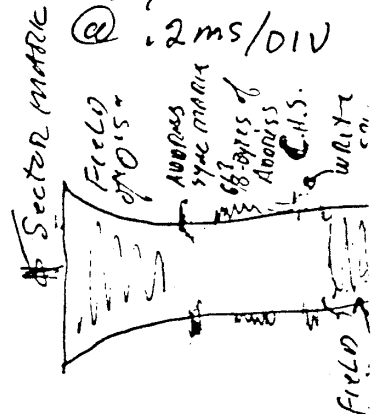 @ .2ms/DIV
Sector MARK
FIELD
of 0's
ADDRESS
SYNC MARK
6/8?
8-BYTES of
ADDRESS
C.H.S.
WRITE
FIELD